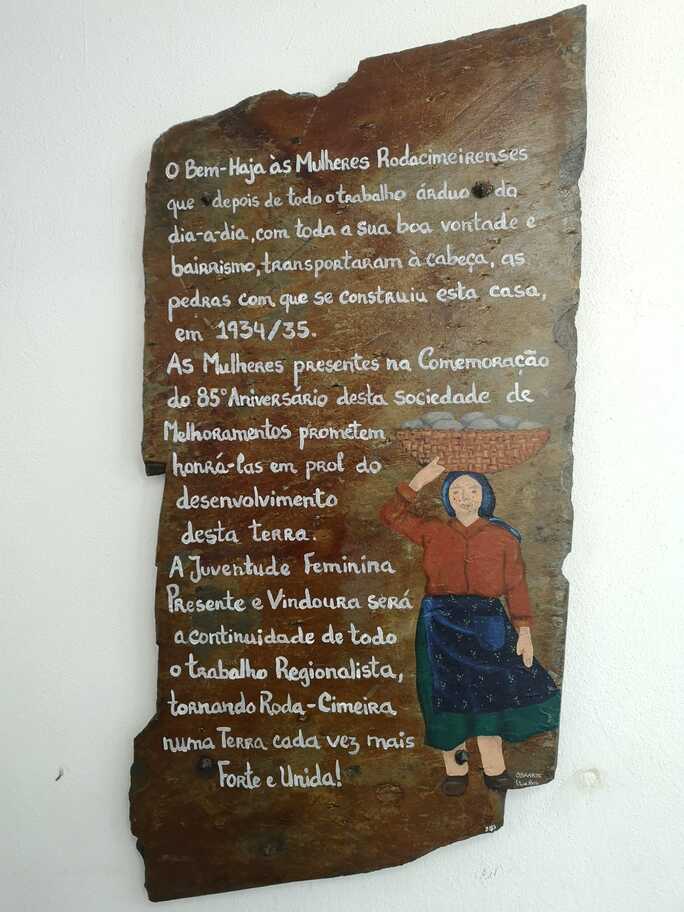 O Bem-Haja às Mulheres Rodacimeirenses
que depois de todo o trabalho árduo do
dia-a-dia, com toda a sua boa vontade e
bairrismo, transportaram à cabeça, as
pedras com que se construiu esta casa,
em 1934/35.
As Mulheres presentes na Comemoração
do 85º Aniversário desta sociedade de
Melhoramentos prometem
honrá-las em prol do
desenvolvimento
desta terra.
A Juventude Feminina
Presente e Vindoura será
a continuidade de todo
o trabalho Regionalista,
tornando Roda-Cimeira
numa Terra cada vez mais
Forte e Unida!